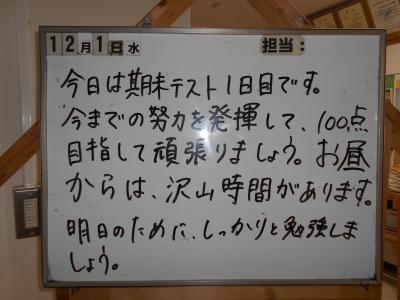 12月1日水 担当:
今日は期末テスト1日目です。
今までの努力を発揮して、100点
目指して頑張りましょう。お昼
からは、沢山時間があります。
明日のために、しっかりと勉強しま
しょう。